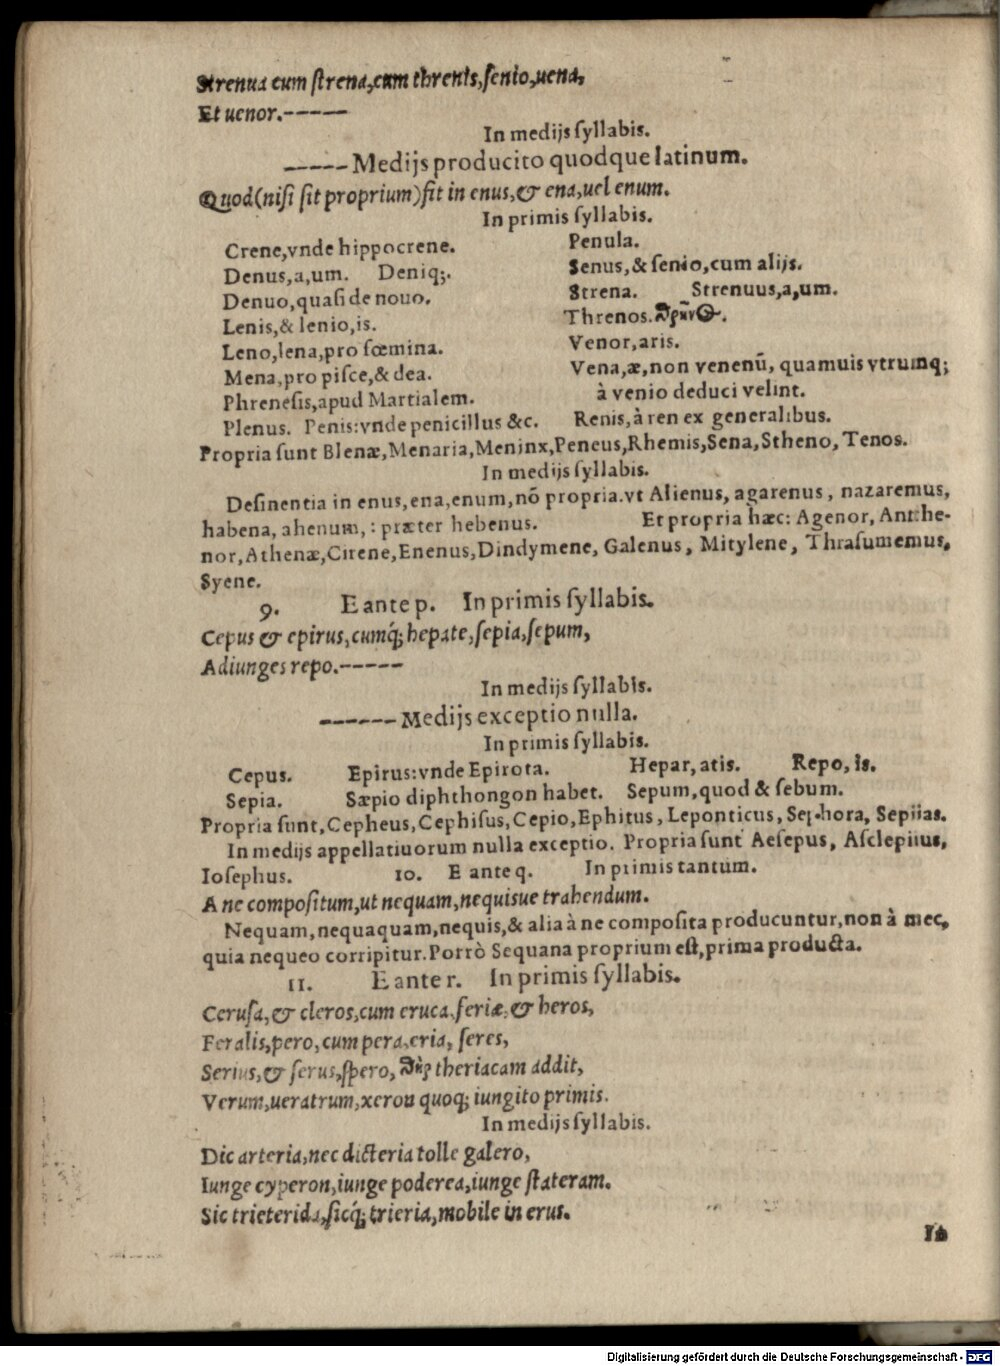 Strenua cum ſtrena,cum threnis,ſenio,uena,
Et uenor.-----
In medijs ſyllabis.
-----Medijs producito quodque latinum.
Quod(niſi ſit proprium)fit in enus,& ena,uel enum.
In primis ſyllabis.
Crene,vnde hippocrene.
Denus,a,um. Deniq;.
Denuo,quaſi de nouo.
Lenis,& lenio,is.
Leno,lena,pro fœmina.
Mena,pro piſce,& dea.
Phreneſis,apud Martialem.
Plenus. Penis:vnde penicillus &c.
Penula.
Senus,& ſenio,cum alijs.
Strena. Strenuus,a,um.
Threnos.
Venor,aris.
Vena,æ,non venenū, quamuis vtrumq;
à venio deduci velint.
Renis,à ren ex generalibus.
Propria ſunt Blenæ,Menaria,Meninx,Peneus,Rhemis,Sena,Stheno, Tenos.
In medijs ſyllabis.
Deſinentia in enus,ena,enum,nō propria.vt Alienus, agarenus, nazarenus,
habena, ahenum, : præter hebenus. Et propria hæc: Agenor, Anthe-
nor,Athenæ,Cirene,Enenus,Dindymene, Galenus, Mitylene, Thraſumemus,
Syene.
9. E ante p. In primis ſyllabis.
Cepus & epirus,cumq́; hepate,ſepia,ſepum,
Adiunges repo.-----
In medijs ſyllabis.
------Medijs exceptio nulla.
In primis ſyllabis.
Cepus. Epirus:vnde Epirota. Hepar, atis. Repo, is.
Sepia. Sæpio diphthongon habet. Sepum,quod & ſebum.
Propria ſunt,Cepheus,Cephiſus,Cepio,Ephitus, Leponticus, Sephora, Sepiias.
In medijs appellatiuorum nulla exceptio. Propria ſunt Aeſepus, Aſclepiius,
Ioſephus. 10. E ante q. In primis tantum.
A ne compoſitum,ut nequam,nequisue trahendum.
Nequam,nequaquam,nequis,& alia à ne compoſita producuntur,non à nec,
quia nequeo corripitur.Porrò Sequana proprium eſt,prima producta.
11. E ante r. In primis ſyllabis.
Ceruſa,& cleros,cum eruca,feriæ,& heros,
Feralis,pero,cum pera,cria, ſeres,
Serius,& ſerus,ſpero, θὴρ theriacam addit,
Verum,ueratrum,xeron quoq; iungito primis.
In medijs ſyllabis.
Dic arteria,nec dicteria tolle galero,
Iunge cyperon,iunge poderea,iunge ſtateram.
Sic trieterida,ſicq́; trieria,mobile in erus.